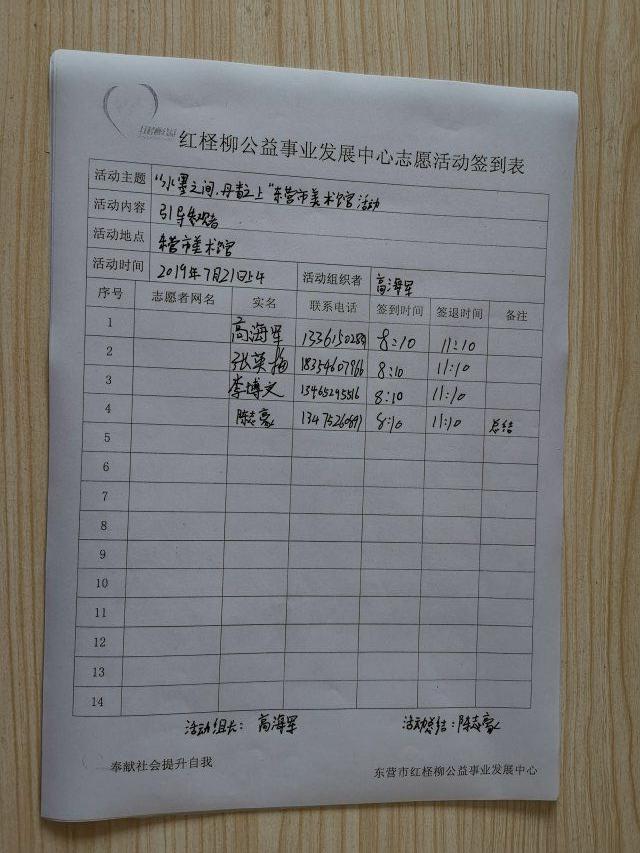 红柽柳公益事业发展中心志愿活动签到表
活动主题 "水墨之间,丹青之上"东营市美术馆活动
活动内容 引导参观者
活动地点 东营市美术馆
活动时间 2019年7月21日上午 活动组织者 高海军
序号 志愿者网名 实名 联系电话 签到时间 签退时间 备注
1 高海军 8:10 11:10
2 张英梅 18354607966 8:10 11:10
3 李博文 13465295516 8:10 11:10
4 陈志豪 13475260891 8:10 11:10 总结
5
6
7
8
9
10
11
12
13
14
活动组长: 高海军 活动总结:陈志豪
奉献社会提升自我 东营市红柽柳公益事业发展中心